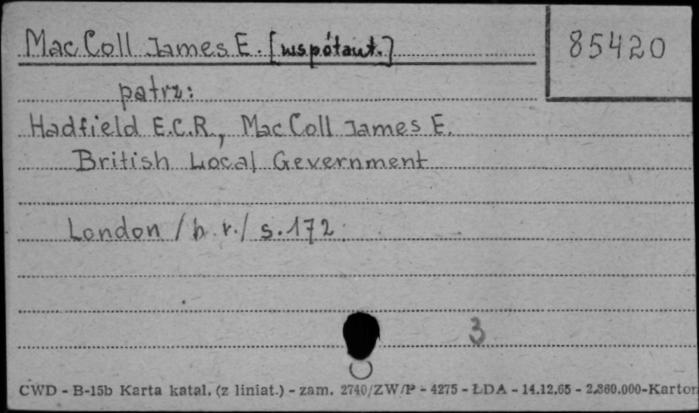 Mac Coll James E. [współaut.]
85420
patrz:
Hadfield E.C.R., Mac Coll James E.
British Local Gevernment
London /b.r./ s.172.
3
CWD - B-15b Karta katal. (z liniat.) - zam. 2740/ZW/P - 4275 - ŁDA - 14.12.65 - 2.860.000-Karton